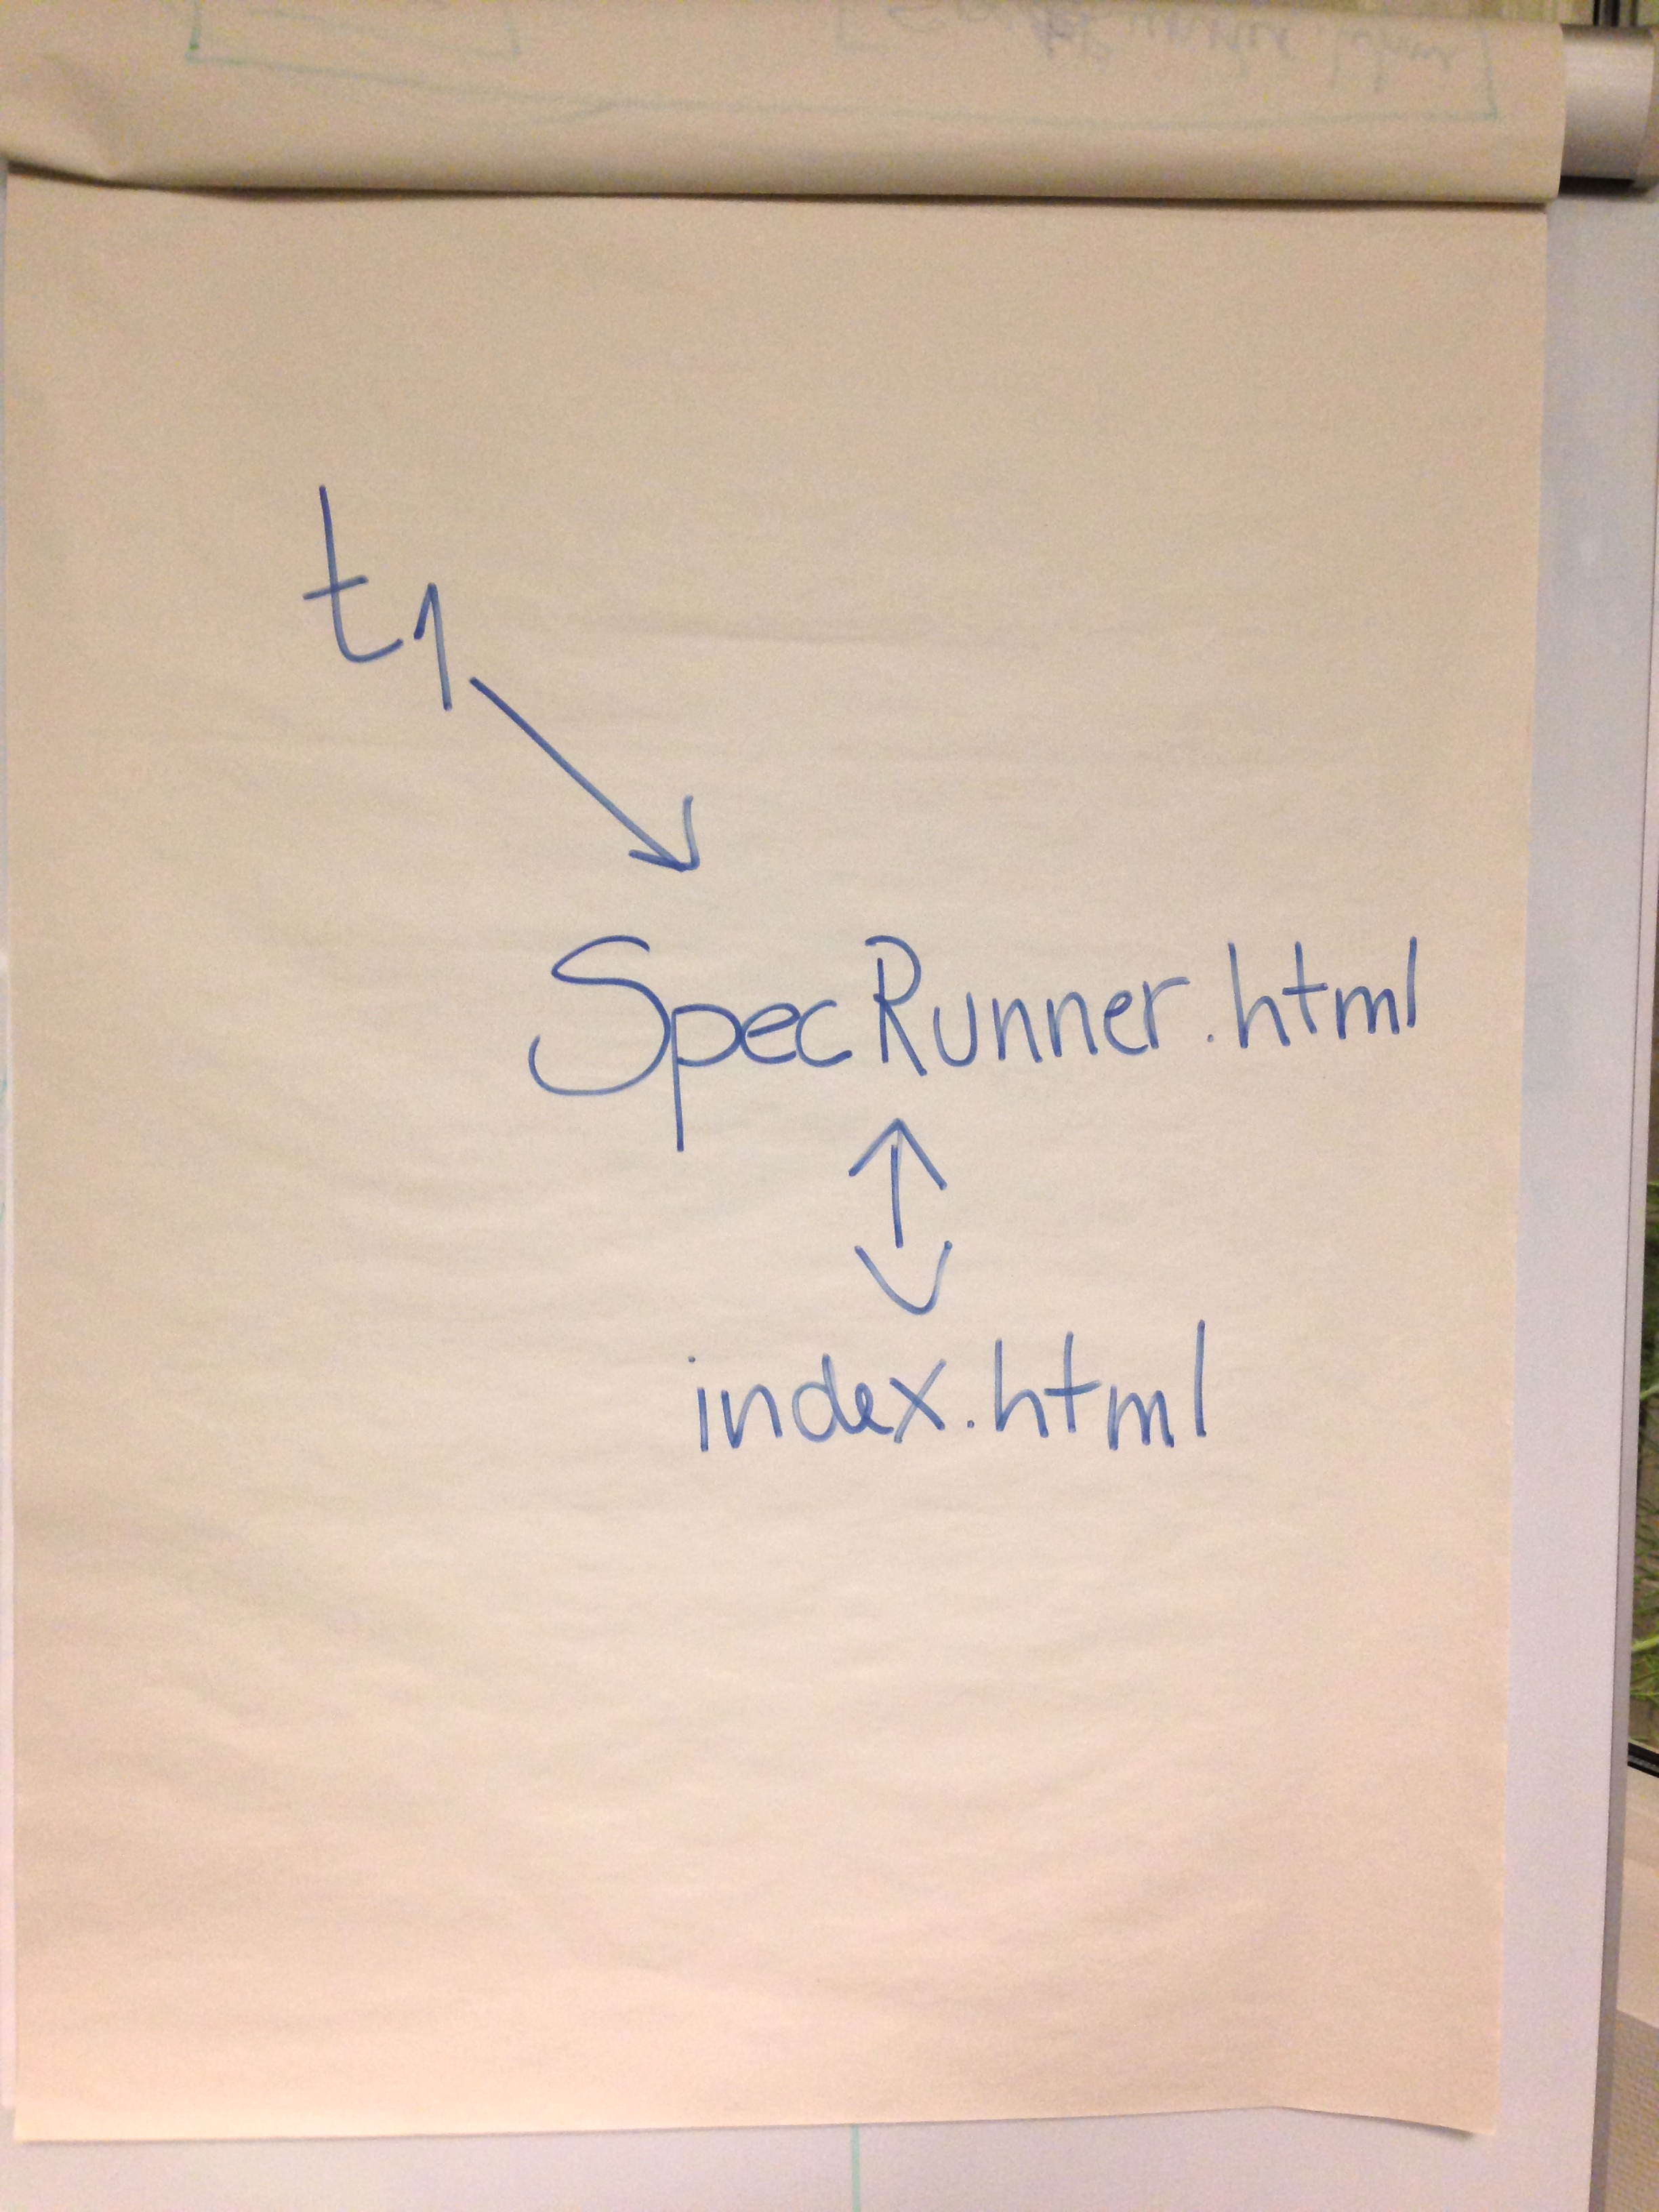 t1
SpecRunner.html
index.html